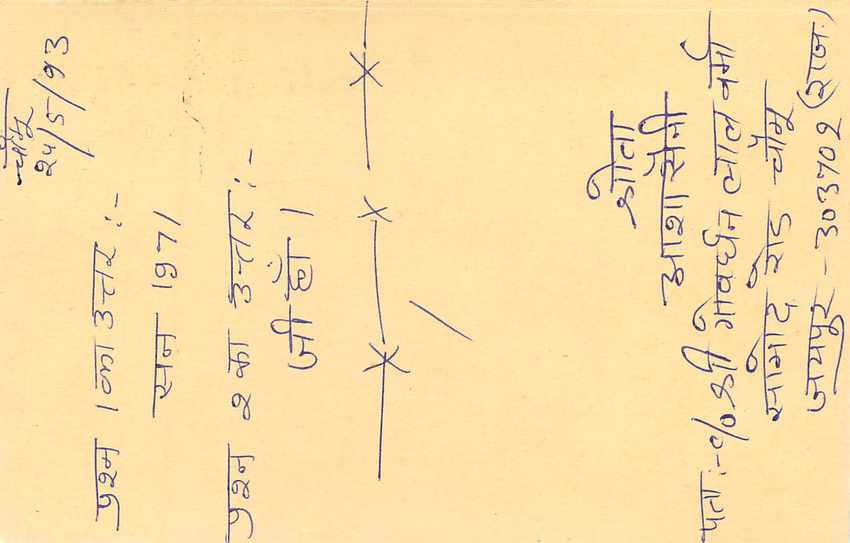 चौमू
24/5/93
प्रश्न 1 का उत्तर :-
सन 1971
प्रश्न 2 का उत्तर :-
जी हाँ ।
श्रोता
आशा सैनी
पता :- C/o श्री गोवर्धन लाल वर्मा
सामोद रोड चौमू
जयपुर - 303702 (राज.)